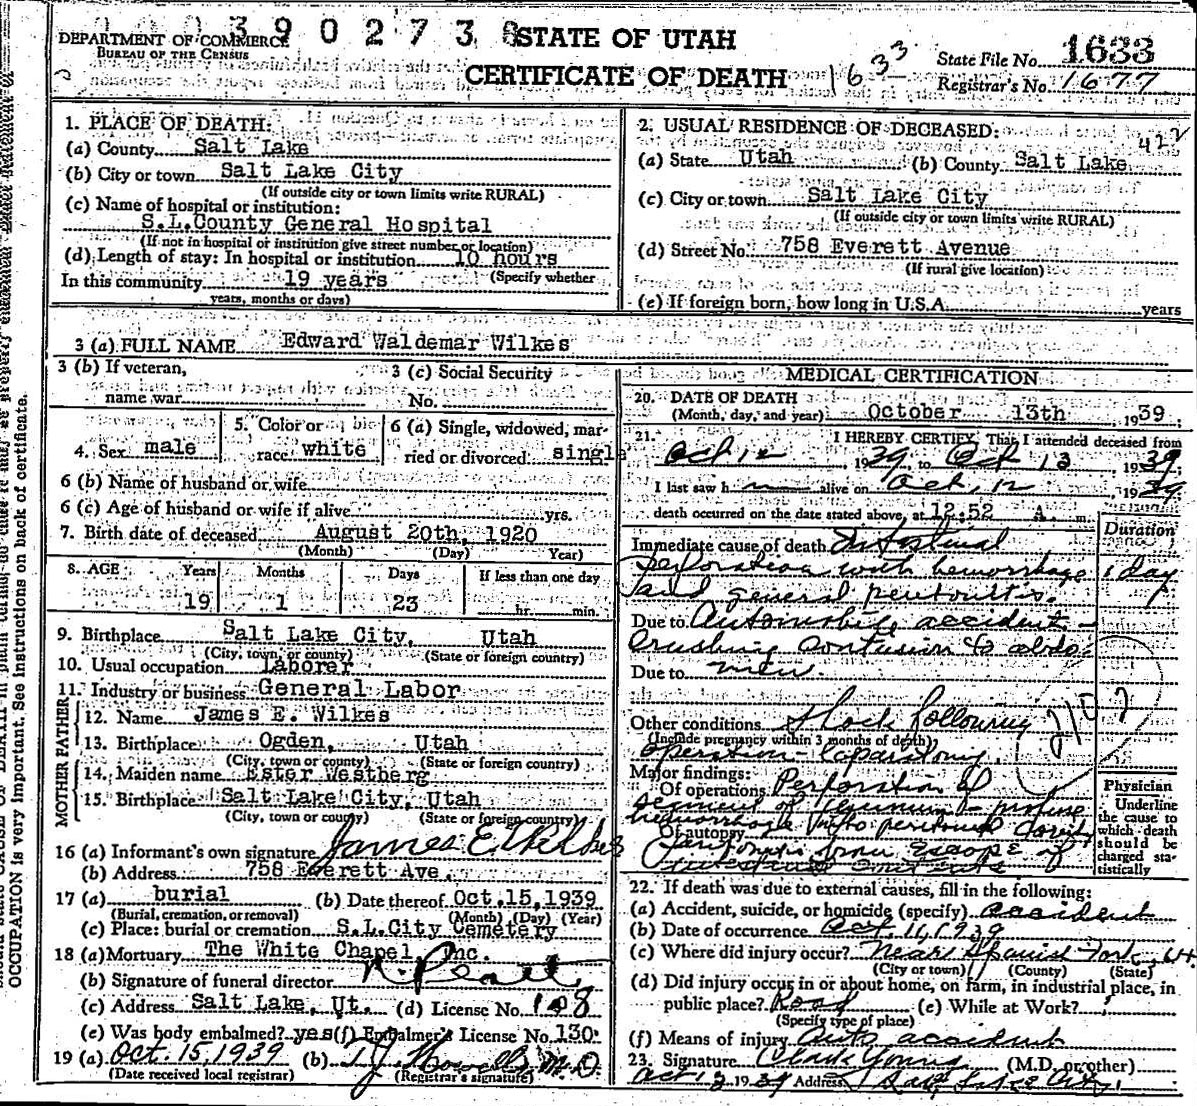 390273
DEPARTMENT OF COMMERCE
BUREAU OF THE CENSUS
STATE OF UTAH
CERTIFICATE OF DEATH
1633
State File No. 1633
Registrar's No. 1677
1. PLACE OF DEATH:
(a) County Salt Lake
(b) City or town Salt Lake City
(If outside city or town limits write RURAL)
(c) Name of hospital or institution:
S.L.County General Hospital
(If not in hospital or institution give street number or location)
(d) Length of stay: In hospital or institution 10 hours
In this community 19 years (Specify whether
years, months or days)
2. USUAL RESIDENCE OF DECEASED:
422
(a) State Utah (b) County Salt Lake
(c) City or town Salt Lake City
(If outside city or town limits write RURAL)
(d) Street No. 758 Everett Avenue
(If rural give location)
(e) If foreign born, how long in U.S.A. years
3 (a) FULL NAME Edward Waldemar Wilkes
3 (b) If veteran,
name war
3 (c) Social Security
No.
4. Sex male
5. Color or
race white
6 (a) Single, widowed, mar-
ried or divorced single
6 (b) Name of husband or wife
6 (c) Age of husband or wife if alive yrs.
7. Birth date of deceased August 20th, 1920
(Month) (Day) Year)
8. AGE Years Months Days If less than one day
19 1 23 hr. min.
9. Birthplace Salt Lake City, Utah
(City, town, or county) (State or foreign country)
10. Usual occupation Laborer
11. Industry or business General Labor
FATHER
12. Name James E. Wilkes
13. Birthplace Ogden, Utah
(City, town or county) (State or foreign country)
MOTHER
14. Maiden name Ester Westberg
15. Birthplace Salt Lake City, Utah
(City, town or county) (State or foreign country)
16 (a) Informant's own signature James E Wilkes
(b) Address 758 Everett Ave.
17 (a) burial (b) Date thereof Oct.15,1939
(Burial, cremation, or removal) (Month) (Day) (Year)
(c) Place: burial or cremation S.L.City Cemetery
18 (a) Mortuary The White Chapel, Inc.
(b) Signature of funeral director
(c) Address Salt Lake, Ut. (d) License No. 108
(e) Was body embalmed? yes (f) Embalmer's License No. 130
19 (a) Oct. 15, 1939 (b) M.D.
(Date received local registrar) (Registrar's signature)
MEDICAL CERTIFICATION
20. DATE OF DEATH
(Month, day, and year) October 13th 1939
21. I HEREBY CERTIFY, That I attended deceased from
Oct 12 1939 to Oct 13 1939
I last saw h m alive on Oct, 12, 1939
death occurred on the date stated above, at 12:52 A. m.
Duration
Immediate cause of death Intestinal
perforation with hemorrhage 1 day
and general peritonitis.
Due to Automobile accident -
crushing contusion to abdo-
Due to men.
2107
Other conditions Shock following
(Include pregnancy within 3 months of death)
operation - laparotomy.
Major findings:
Of operations Perforation of
segment of jejunum - profuse
hemorrhage into peritoneal cavity
Of autopsy
peritonitis from escape of
intestinal contents
Physician
Underline
the cause to
which death
should be
charged sta-
tistically
22. If death was due to external causes, fill in the following:
(a) Accident, suicide, or homicide (specify) accident
(b) Date of occurrence Oct 11, 1939
(c) Where did injury occur? Near Spanish Fork, Ut.
(City or town) (County) (State)
(d) Did injury occur in or about home, on farm, in industrial place, in
public place? Road (e) While at Work?
(Specify type of place)
(f) Means of injury Auto accident
23. Signature Clark Young (M.D. or other)
Oct 13 1939 Address Salt Lake City
OCCUPATION is very important. See instructions on back of certificate.